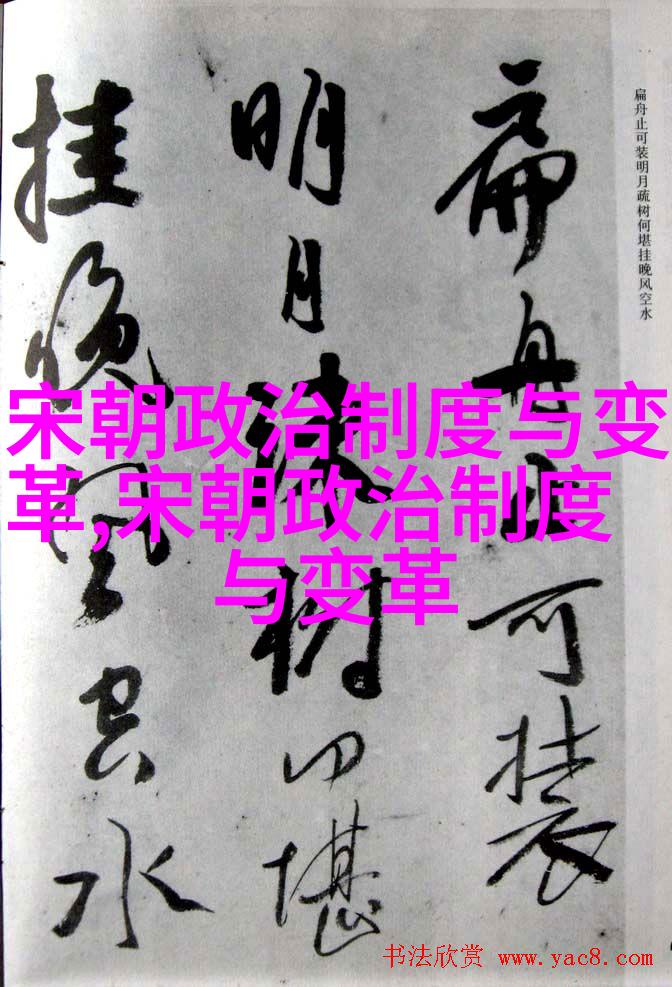 扁舟止可装
明月疏树何堪
挂晚风空水
扁舟止可装明月疏树何堪挂晚风空水
宋朝政治制度与变
革,宋朝政治制度
与变革
书法欣赏 www.yac8.com